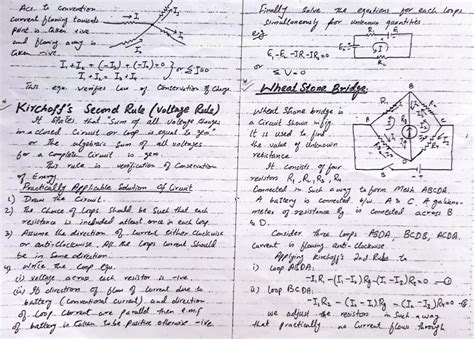 Acc. to convention
current flowing towards
point is taken +ive
and flowing away is
taken -ive.
I₁ + I₂ + (-I₃) + (-I₄) = 0
I₁ + I₂ = I₃ + I₄
or ΣI=0
This eqn. verifies law of Conservation of charge.
Kirchoff's Second Rule (Voltage Rule)
It states that "Sum of all voltage changes
in a closed Circuit or loop is equal to zero."
or The algebraic Sum of all voltages
for a complete Circuit is zero.
This rule is verification of Conservation
of Energy.
Practically Applicable Solution of Circuit
1) Draw the Circuit.
2) The Choice of loops should be such that each
resistance is included atleast once in each loop.
3) Assume the direction of current either clockwise
or anti-clockwise. All the loops current should
be in same direction.
4) Write the loop eqn.
(i) voltage across each resistor is -ive.
(ii) If direction of flow of current due to
battery (conventional current) and direction
of loop current are parallel then e.m.f
of battery is taken to be positive otherwise -ive.
Finally solve the equations for each loops
simultaneously for unknown quantities
e.g
E₁-E₂-IR₁-IR₂=0
or
ΣV=0
Wheat Stone Bridge
Wheat Stone bridge is
a circuit shown in fig
It is used to find
the value of unknown
resistance.
It consists of four
resistors R₁, R₂, R₃, R₄
connected in such a way to form Mesh ABCDA.
A battery is connected b/w A & C. A galvano-
meter of resistance Rg is connected across B
& D.
Consider three loops ABDA, BCDB, ACDA.
current is flowing anti-clockwise.
Applying kirchoff's 2nd Rule to
i) loop ABDA:
ii) loop BCDA:
we adjust the resistors in such a way
that practically no current flows through